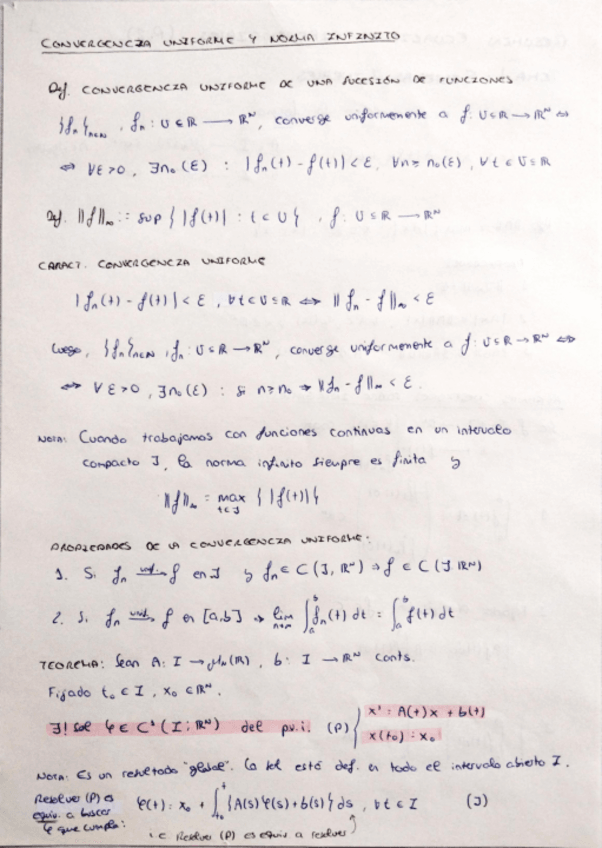 CONVERGENCIA UNIFORME Y NORMA INFINITO
Def. CONVERGENCIA UNIFORME DE UNA SUCESIÓN DE FUNCIONES
{fn}n∈N, fn: U⊆R → R^N, converge uniformemente a f: U⊆R → R^N ⇔
⇔ ∀ε>0, ∃n₀(ε) : |fn(t) - f(t)| < ε, ∀n≥n₀(ε), ∀t∈U⊆R
Def. ||f||∞ := sup { |f(t)| : t∈U }, f: U⊆R → R^N
CARACT. CONVERGENCIA UNIFORME
|fn(t) - f(t)| < ε, ∀t∈U⊆R ⇔ ||fn - f||∞ < ε
Luego, {fn}n∈N, fn: U⊆R → R^N, converge uniformemente a f: U⊆R → R^N ⇔
⇔ ∀ε>0, ∃n₀(ε) : si n≥n₀ ⇒ ||fn - f||∞ < ε.
NOTA: Cuando trabajamos con funciones continuas en un intervalo
compacto J, la norma infinito siempre es finita y
||f||∞ = max t∈J { |f(t)| }
PROPIEDADES DE LA CONVERGENCIA UNIFORME:
1. Si fn unif.→ f en J y fn ∈ C(J, R^N) ⇒ f ∈ C(J, R^N)
2. Si fn unif.→ f en [a,b] ⇒ lim n→∞ ∫ₐᵇ fn(t) dt = ∫ₐᵇ f(t) dt
TEOREMA: Sean A: I → Mn(R), b: I → R^N conts.
Fijado t₀ ∈ I, x₀ ∈ R^N.
∃! sol φ ∈ C¹(I; R^N) del p.v.i. (P) { x' = A(t)x + b(t)
x(t₀) = x₀
NOTA: Es un resultado "global". La sol está def. en todo el intervalo abierto I.
Resolver (P) es
equiv. a buscar φ(t) = x₀ + ∫ₜ₀ᵗ {A(s)φ(s)+b(s)} ds, ∀t ∈ I (J)
φ que cumpla:
i.e Resolver (P) es equiv a resolver